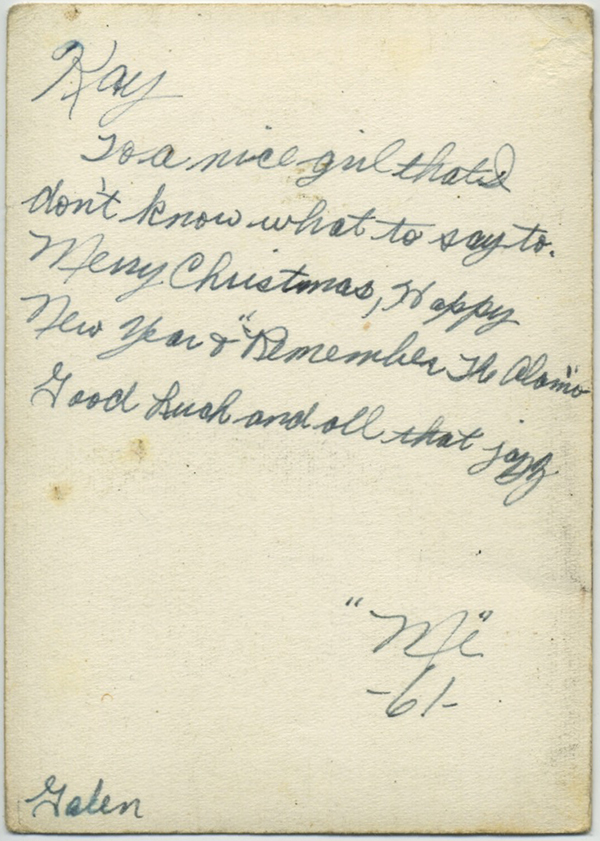 Kay
To a nice girl that I
don't know what to say to.
Merry Christmas, Happy
New Year & "Remember The Alamo"
Good Luck and all that jazz
"Me"
-61-
Galen